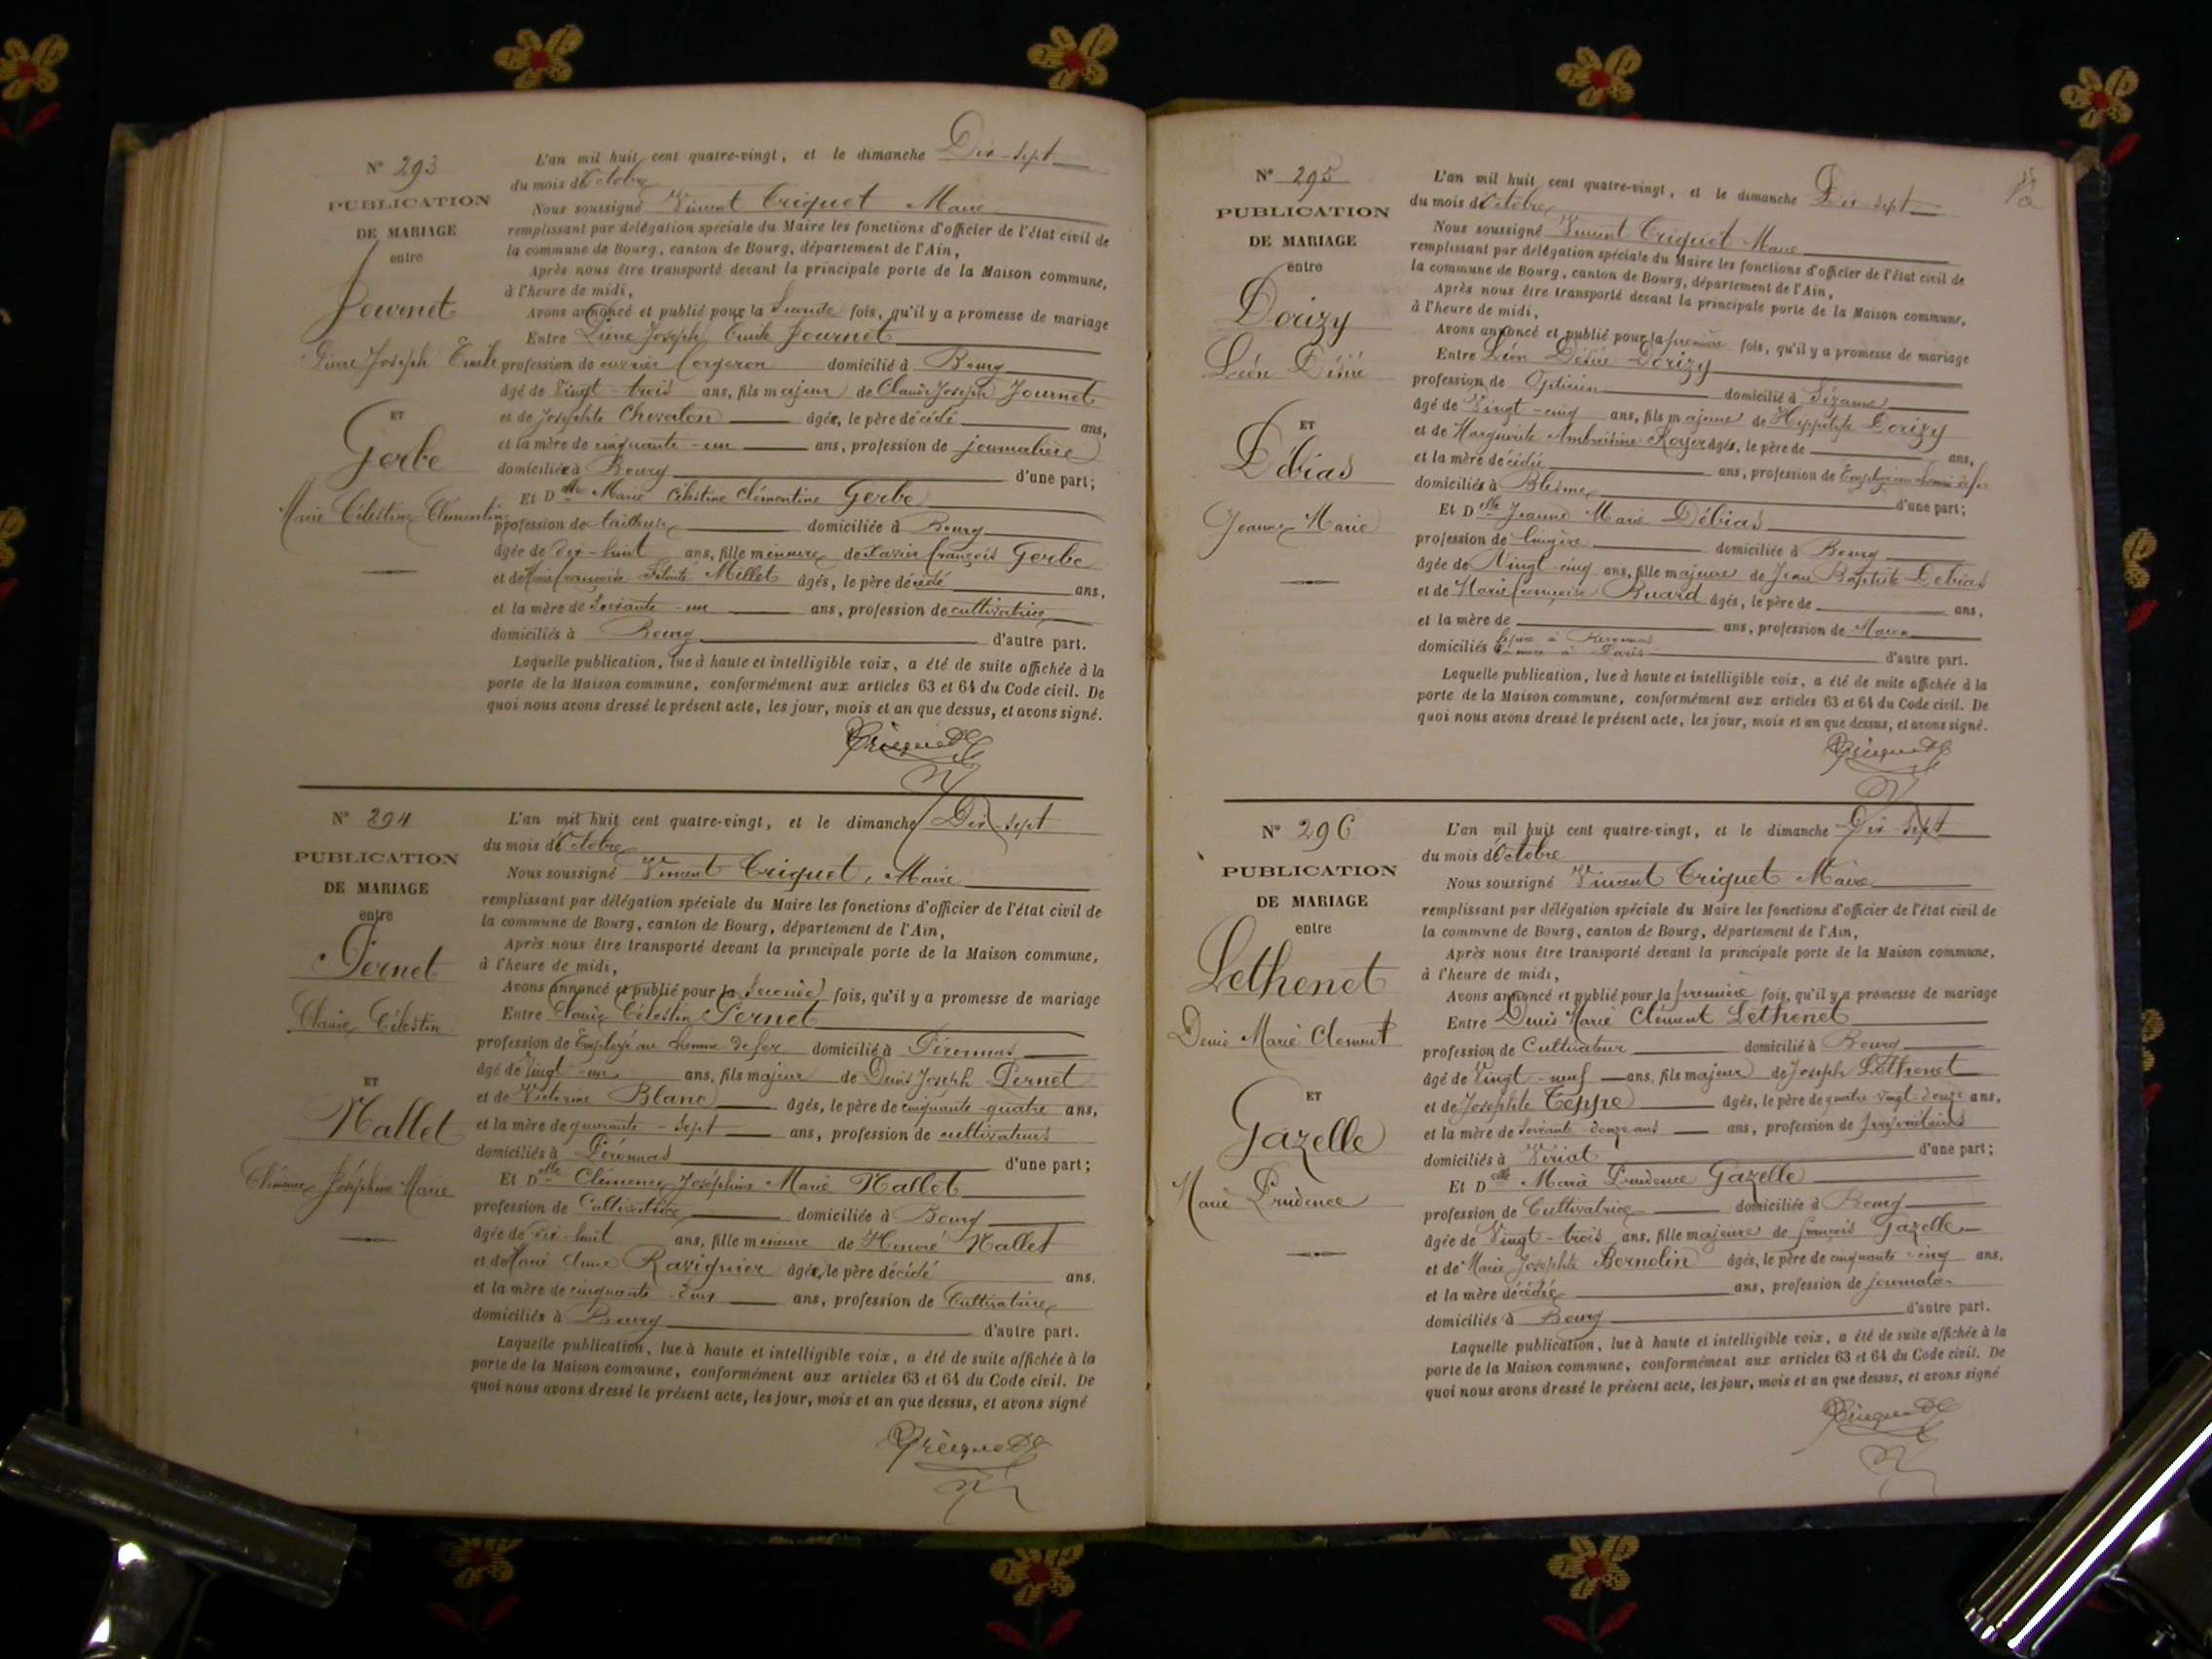 N° 293
PUBLICATION
DE MARIAGE
entre
Journet
Pierre Joseph Emile
ET
Gerbe
Marie Célestine Clémentine
L'an mil huit cent quatre-vingt, et le dimanche Dix-sept
du mois d'Octobre
Nous soussigné Vincent Triquet Maire
remplissant par délégation spéciale du Maire les fonctions d'officier de l'état civil de
la commune de Bourg, canton de Bourg, département de l'Ain,
Après nous être transporté devant la principale porte de la Maison commune,
à l'heure de midi,
Avons annoncé et publié pour la Seconde fois, qu'il y a promesse de mariage
Entre Pierre Joseph Emile Journet
profession de ouvrier forgeron domicilié à Bourg
âgé de Vingt-trois ans, fils majeur de Claude Joseph Journet
et de Josephte Chevalon âgés, le père décédé ans,
et la mère de cinquante-un ans, profession de journalière
domiciliée à Bourg d'une part;
Et Dlle Marie Célestine Clémentine Gerbe
profession de domiciliée à Bourg
âgée de dix-huit ans, fille mineure de Xavier François Gerbe
et de Marie Françoise Félicité Millet âgés, le père décédé ans,
et la mère de Soixante-un ans, profession de cultivatrice
domiciliés à Bourg d'autre part.
Laquelle publication, lue à haute et intelligible voix, a été de suite affichée à la
porte de la Maison commune, conformément aux articles 63 et 64 du Code civil. De
quoi nous avons dressé le présent acte, les jour, mois et an que dessus, et avons signé.
Triquet
N° 294
PUBLICATION
DE MARIAGE
entre
Pernet
Claude Célestin
ET
Nallet
Clémence Joséphine Marie
L'an mil huit cent quatre-vingt, et le dimanche Dix-sept
du mois d'Octobre
Nous soussigné Vincent Triquet, Maire
remplissant par délégation spéciale du Maire les fonctions d'officier de l'état civil de
la commune de Bourg, canton de Bourg, département de l'Ain,
Après nous être transporté devant la principale porte de la Maison commune,
à l'heure de midi,
Avons annoncé et publié pour la Seconde fois, qu'il y a promesse de mariage
Entre Claude Célestin Pernet
profession de Employé au chemin de fer domicilié à Péronnas
âgé de Vingt-un ans, fils majeur de Denis Joseph Pernet
et de Victorine Blanc âgés, le père de cinquante-quatre ans,
et la mère de quarante-sept ans, profession de cultivateurs
domiciliés à Péronnas d'une part;
Et Dlle Clémence Joséphine Marie Nallet
profession de Cultivatrice domiciliée à Bourg
âgée de dix-huit ans, fille mineure de Honoré Nallet
et de Marie Anne Ravignier âgés, le père décédé ans.
et la mère de cinquante-deux ans, profession de Cultivatrice
domiciliés à Bourg d'autre part.
Laquelle publication, lue à haute et intelligible voix, a été de suite affichée à la
porte de la Maison commune, conformément aux articles 63 et 64 du Code civil. De
quoi nous avons dressé le présent acte, les jour, mois et an que dessus, et avons signé
Triquet
N° 295
PUBLICATION
DE MARIAGE
entre
Dorizy
Léon Désiré
ET
Débias
Jeanne Marie
L'an mil huit cent quatre-vingt, et le dimanche Dix-sept
du mois d'Octobre
Nous soussigné Vincent Triquet Maire
remplissant par délégation spéciale du Maire les fonctions d'officier de l'état civil de
la commune de Bourg, canton de Bourg, département de l'Ain,
Après nous être transporté devant la principale porte de la Maison commune,
à l'heure de midi,
Avons annoncé et publié pour la première fois, qu'il y a promesse de mariage
Entre Léon Désiré Dorizy
profession de Opticien domicilié à Sézanne
âgé de Vingt-cinq ans, fils majeur de Hippolyte Dorizy
et de Marguerite Ambroisine Royer âgés, le père de ans,
et la mère décédée ans, profession de Employé au chemin de fer
domiciliés à Blesme d'une part;
Et Dlle Jeanne Marie Débias
profession de lingère domiciliée à Bourg
âgée de Vingt-cinq ans, fille majeure de Jean Baptiste Debias
et de Marie Françoise Buard âgés, le père de ans,
et la mère de ans, profession de Maçon
domiciliés le père à Péronnas
la mère à Paris d'autre part.
Laquelle publication, lue à haute et intelligible voix, a été de suite affichée à la
porte de la Maison commune, conformément aux articles 63 et 64 du Code civil. De
quoi nous avons dressé le présent acte, les jour, mois et an que dessus, et avons signé.
Triquet
N° 296
PUBLICATION
DE MARIAGE
entre
Lethenet
Denis Marie Clement
ET
Gazelle
Marie Prudence
L'an mil huit cent quatre-vingt, et le dimanche Dix-Sept
du mois d'Octobre
Nous soussigné Vincent Triquet Maire
remplissant par délégation spéciale du Maire les fonctions d'officier de l'état civil de
la commune de Bourg, canton de Bourg, département de l'Ain,
Après nous être transporté devant la principale porte de la Maison commune,
à l'heure de midi,
Avons annoncé et publié pour la première fois, qu'il y a promesse de mariage
Entre Denis Marie Clément Lethenet
profession de Cultivateur domicilié à Bourg
âgé de Vingt-neuf ans, fils majeur de Joseph Lethenet
et de Josephte Teppe âgés, le père de quatre-vingt-douze ans,
et la mère de soixante-douze ans ans, profession de propriétaires
domiciliés à Viriat d'une part;
Et Dlle Marie Prudence Gazelle
profession de Cultivatrice domiciliée à Bourg
âgée de Vingt-trois ans, fille majeure de françois Gazelle
et de Marie Josephte Bernolin âgés, le père de cinquante-cinq ans.
et la mère décédée ans, profession de journalier
domiciliés à Bourg d'autre part.
Laquelle publication, lue à haute et intelligible voix, a été de suite affichée à la
porte de la Maison commune, conformément aux articles 63 et 64 du Code civil. De
quoi nous avons dressé le présent acte, les jour, mois et an que dessus, et avons signé
Triquet